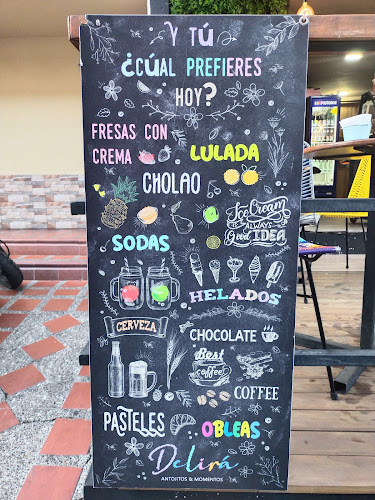 Y TÚ
¿CÚAL PREFIERES
HOY?
FRESAS CON
CREMA
LULADA
CHOLAO
Ice Cream
IS ALWAYS a
Good IDEA
SODAS
HELADOS
CERVEZA
CHOCOLATE
Best
COFFEE
COFFEE
PASTELES
OBLEAS
Delirá
ANTOJITOS & MOMENTOS